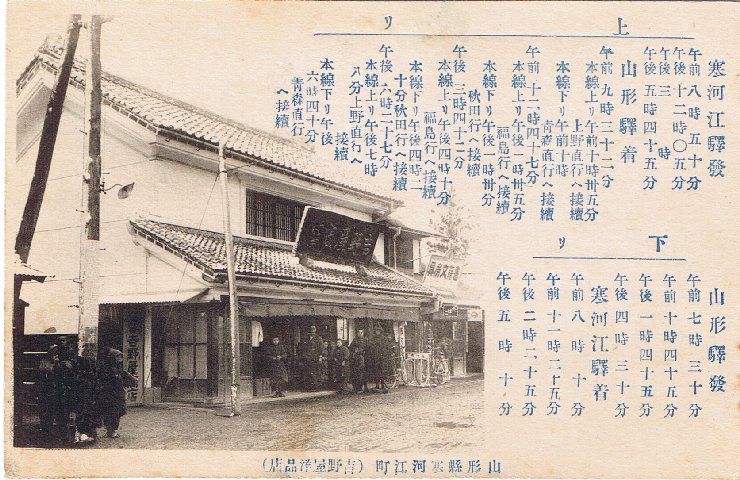 上リ
寒河江驛發
午前八時五十分
午後十二時〇五分
午後三時
午後五時四十五分
山形驛着
午前九時三十二分
本線上リ午前十時卅五分
上野直行ヘ接續
本線下リ午前十時
青森直行ヘ接續
午前十二時四十七分
本線上リ午後一時卅五分
福島行ヘ接續
本線下リ午後一時卅分
秋田行ヘ接續
午後三時四十二分
本線上リ午後四時十分
福島行ヘ接續
本線下リ午後四時二
十分秋田行ヘ接續
午後六時二十七分
本線上リ午後七時
八分上野直行ヘ
接續
本線下リ午後
六時四十分
青森直行
ヘ接續
下リ
山形驛發
午前七時三十分
午前十時四十五分
午後一時四十五分
午後四時三十分
寒河江驛着
午前八時十分
午前十一時二十五分
午後二時二十五分
午後五時十分
吉野屋
山形縣寒河江町 (吉野屋洋品店)